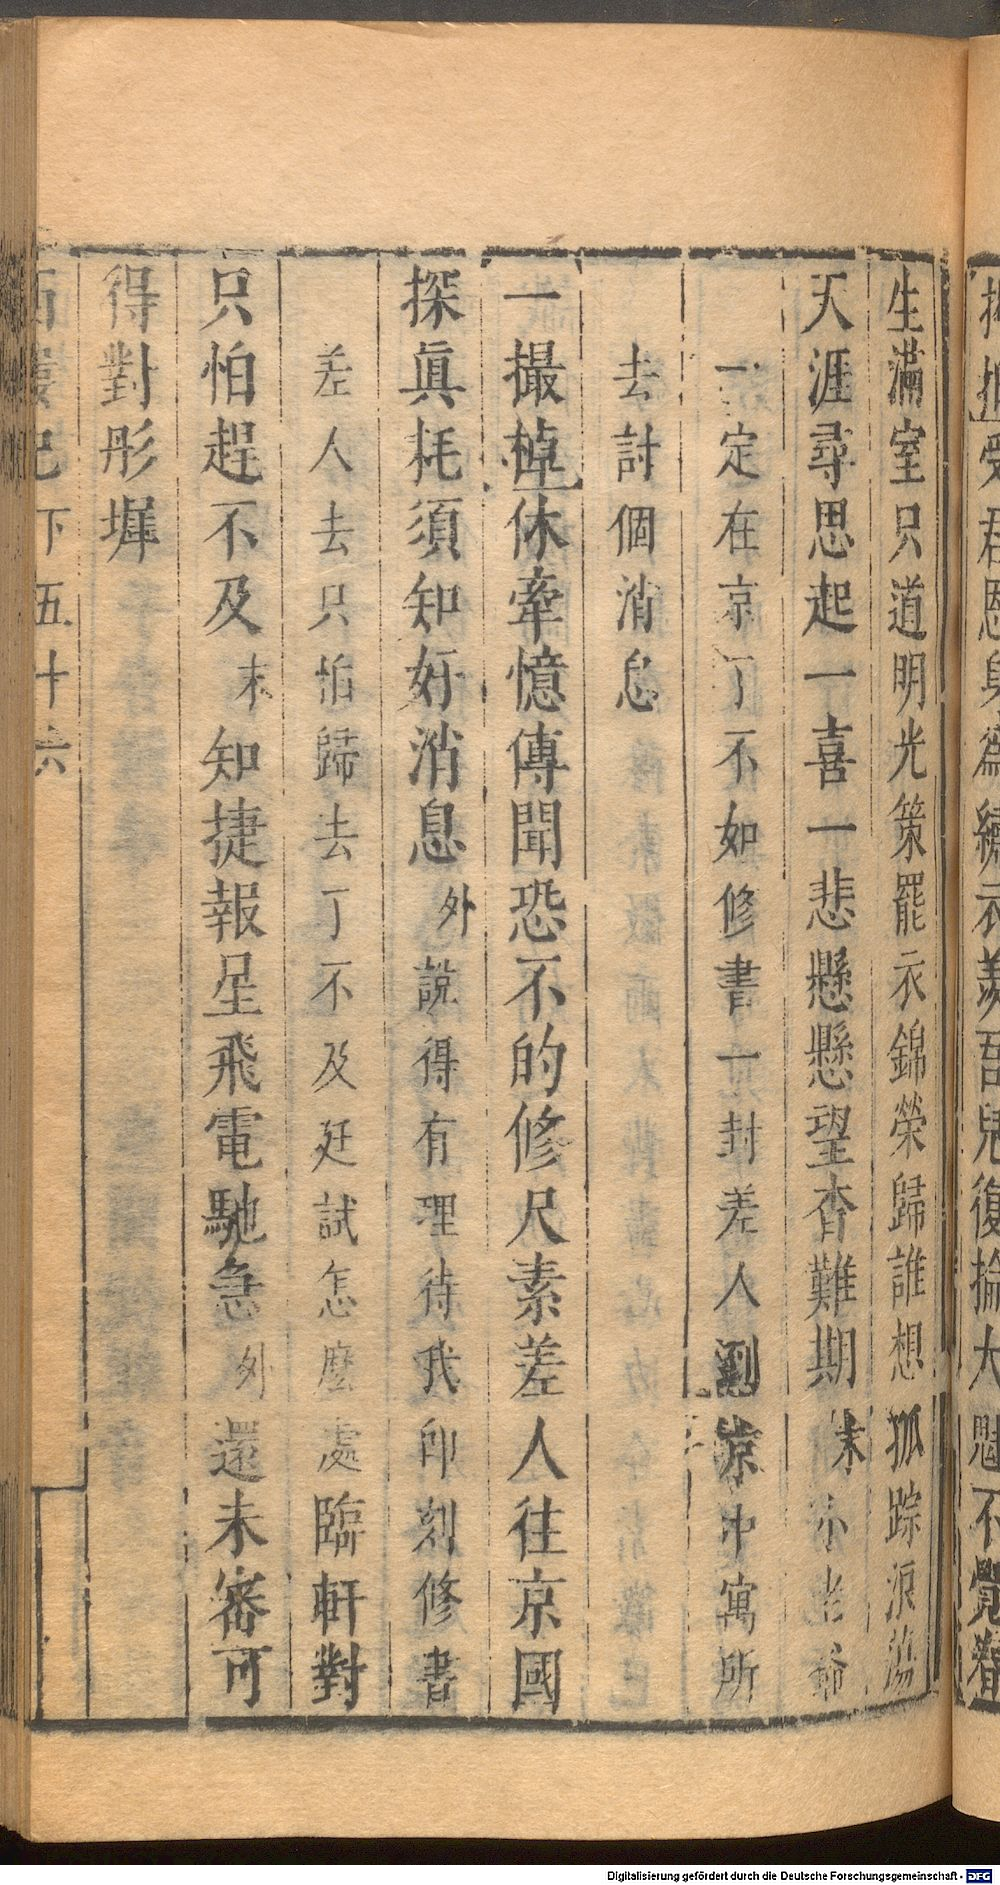 生滿室只道明光策罷衣錦榮歸誰想狐踪浪蕩
天涯尋思起一喜一悲懸懸望杳難期末小老爺
一定在京了不如修書一封差人到京中寓所
去討個消息
一撮棹休牽憶傳聞恐不的修尺素差人往京國
探眞耗須知好消息外說得有理待我即刻修書
差人去只怕歸去了不及廷試怎麽處臨軒對
只怕趕不及末知捷報星飛電馳急外還未審可
得對彤墀
西樓記下五十六
受君恩
繡衣羨吾兒復掄大魁不覺
Digitalisierung gefördert durch die Deutsche Forschungsgemeinschaft - DFG